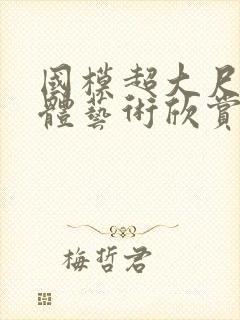 國模超大尺
體藝術欣賞
梅哲君